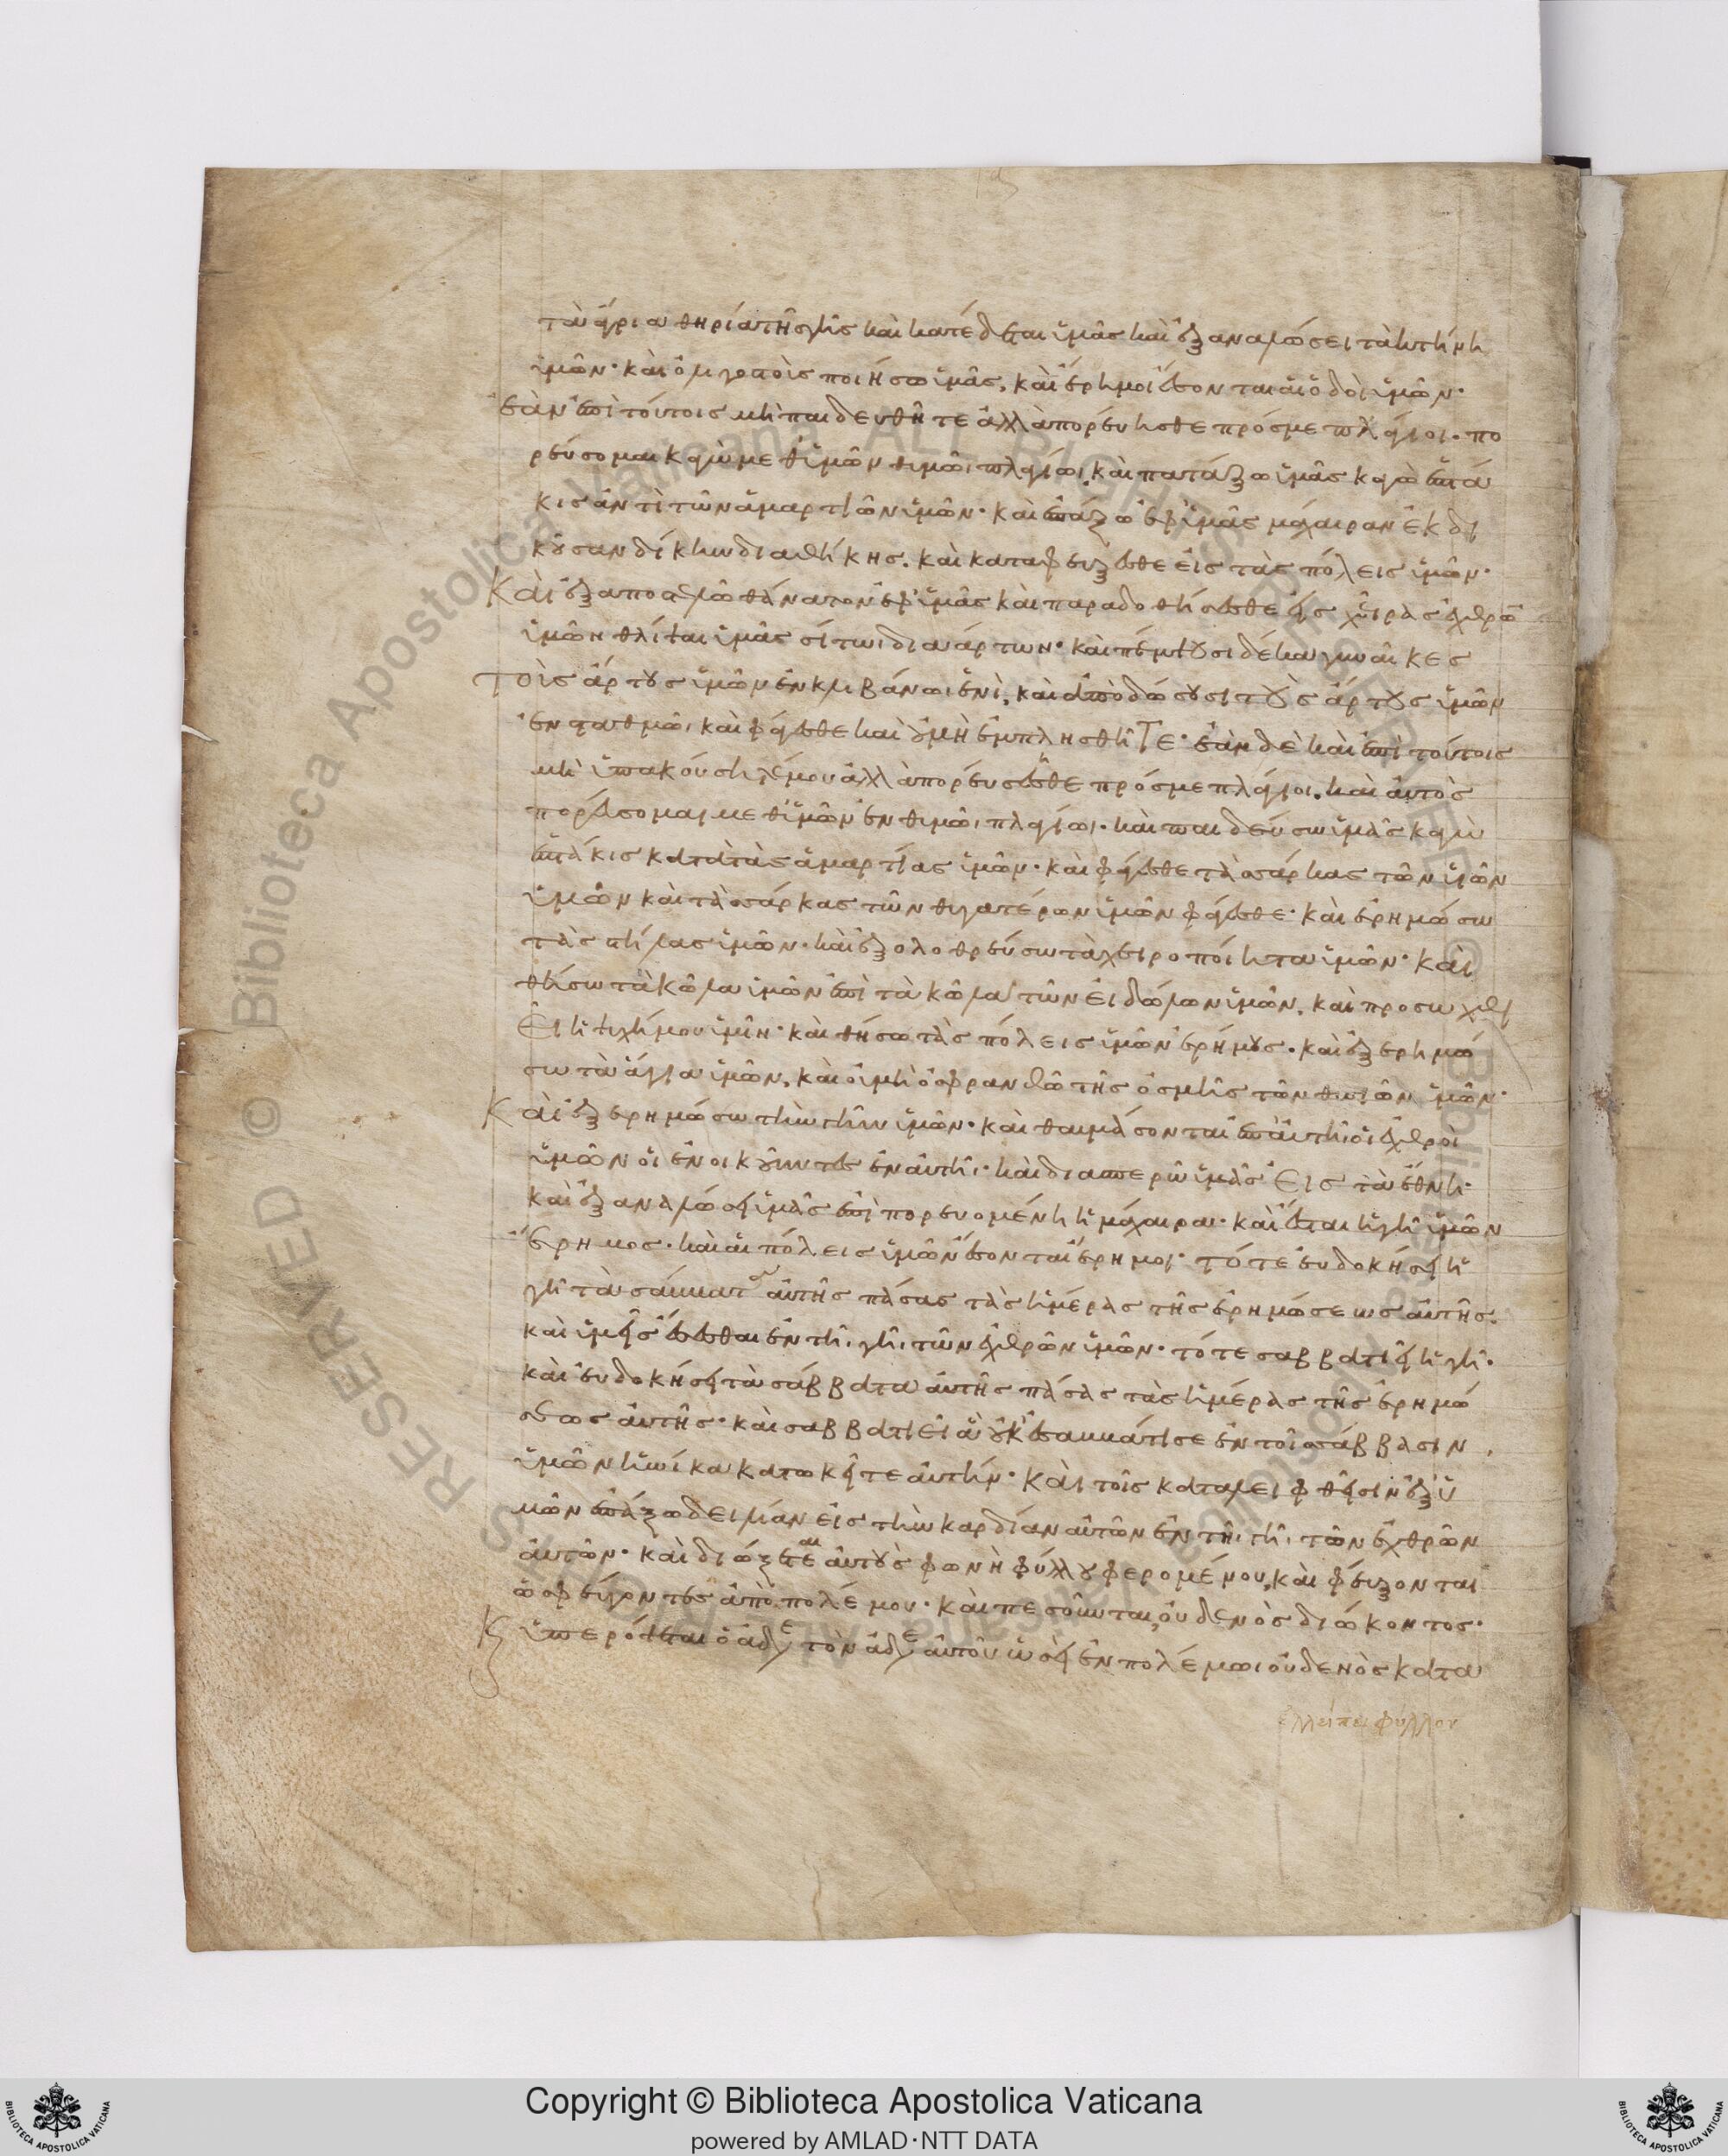 τὰ ἄγρια θηρία τῆς γῆς καὶ κατέδεται ὑμᾶς καὶ ἐξαναλώσει τὰ κτήνη
ὑμῶν· καὶ ὀλιγοστοὺς ποιήσω ὑμᾶς, καὶ ἔρημοι ἔσονται αἱ ὁδοὶ ὑμῶν·
ἐὰν ἐπὶ τούτοις μὴ παιδευθῆτε ἀλλὰ πορεύησθε πρός με πλάγιοι· πο
ρεύσομαι κἀγὼ μεθ' ὑμῶν θυμῶι πλαγίωι, καὶ πατάξω ὑμᾶς κἀγὼ ἑπτά
κις ἀντὶ τῶν ἁμαρτιῶν ὑμῶν· καὶ ἐπάξω ἐφ' ὑμᾶς μάχαιραν ἐκδι
κοῦσαν δίκην διαθήκης. καὶ καταφεύξεσθε εἰς τὰς πόλεις ὑμῶν·
Καὶ ἐξαποστελῶ θάνατον ἐφ' ὑμᾶς καὶ παραδοθήσεσθε εἰς χεῖρας ἐχθρῶ
ὑμῶν θλίψαι ὑμᾶς σιτωιδία ἄρτων· καὶ πέμψουσι δέκα γυναῖκες
τοὺς ἄρτους ὑμῶν ἐν κλιβάνωι ἑνὶ, καὶ ἀποδώσουσι τοὺς ἄρτους ὑμῶν
ἐν σταθμῶι καὶ φάγεσθε καὶ οὐ μὴ ἐμπλησθῆτε· ἐὰν δὲ καὶ ἐπὶ τούτοις
μὴ ὑπακούσητέ μου ἀλλὰ πορεύσησθε πρός με πλάγιοι. καὶ αὐτὸς
πορεύσομαι μεθ' ὑμῶν ἐν θυμῶι πλαγίωι· καὶ παιδεύσω ὑμᾶς κἀγὼ
ἑπτάκις κατὰ τὰς ἁμαρτίας ὑμῶν· καὶ φάγεσθε τὰς σάρκας τῶν υἱῶν
ὑμῶν καὶ τὰς σάρκας τῶν θυγατέρων ὑμῶν φάγεσθε· καὶ ἐρημώσω
τὰς στήλας ὑμῶν· καὶ ἐξολοθρεύσω τὰ χειροποίητα ὑμῶν· καὶ
θήσω τὰ κῶλα ὑμῶν ἐπὶ τὰ κῶλα τῶν εἰδώλων ὑμῶν, καὶ προσωχθι
εῖ ἡ ψυχή μου ὑμῖν· καὶ θήσω τὰς πόλεις ὑμῶν ἐρήμους. καὶ ἐξερημώ
σω τὰ ἅγια ὑμῶν, καὶ οὐ μὴ ὀσφρανθῶ τῆς ὀσμῆς τῶν θυσιῶν ὑμῶν·
Καὶ ἐξερημώσω τὴν γῆν ὑμῶν· καὶ θαυμάσονται ἐπ' αὐτῆι οἱ ἐχθροὶ
ὑμῶν οἱ ἐνοικοῦντες ἐν αὐτῆι· καὶ διασπερῶ ὑμᾶς εἰς τὰ ἔθνη·
καὶ ἐξαναλώσει ὑμᾶς ἐπιπορευομένη ἡ μάχαιρα· καὶ ἔσται ἡ γῆ ὑμῶν
ἔρημος· καὶ αἱ πόλεις ὑμῶν ἔσονται ἔρημοι· τότε εὐδοκήσει ἡ
γῆ τὰ σάββατα αὐτῆς πάσας τὰς ἡμέρας τῆς ἐρημώσεως αὐτῆς.
καὶ ὑμεῖς ἔσεσθαι ἐν τῆι γῆι τῶν ἐχθρῶν ὑμῶν· τότε σαββατιεῖ ἡ γῆ·
καὶ εὐδοκήσει τὰ σάββατα αὐτῆς πάσας τὰς ἡμέρας τῆς ἐρημώ
σεως αὐτῆς· καὶ σαββατιεῖ ἃ οὐκ ἐσαββάτισε ἐν τοῖς σάββασιν
ὑμῶν ἡνίκα κατωκεῖτε αὐτήν· καὶ τοῖς καταλειφθεῖσιν ἐξ ὑ
μῶν ἐπάξω δειλίαν εἰς τὴν καρδίαν αὐτῶν ἐν τῆι γῆι τῶν ἐχθρῶν
αὐτῶν· καὶ διώξεται αὐτοὺς φωνὴ φύλλου φερομένου, καὶ φεύξονται
ὡς φεύγοντες ἀπὸ πολέμου· καὶ πεσοῦνται οὐδενὸς διώκοντος·
Κ ὑπερόψεται ὁ ἀδε τὸν ἀδε αὐτοῦ ὡσεὶ ἐν πολέμωι οὐδενὸς κατα
ἐλλείπει φύλλον
© Biblioteca Apostolica Vaticana ALL RIGHTS RESERVED
Copyright © Biblioteca Apostolica Vaticana
powered by AMLAD·NTT DATA
BIBLIOTECA APOSTOLICA VATICANA
BIBLIOTECA APOSTOLICA VATICANA